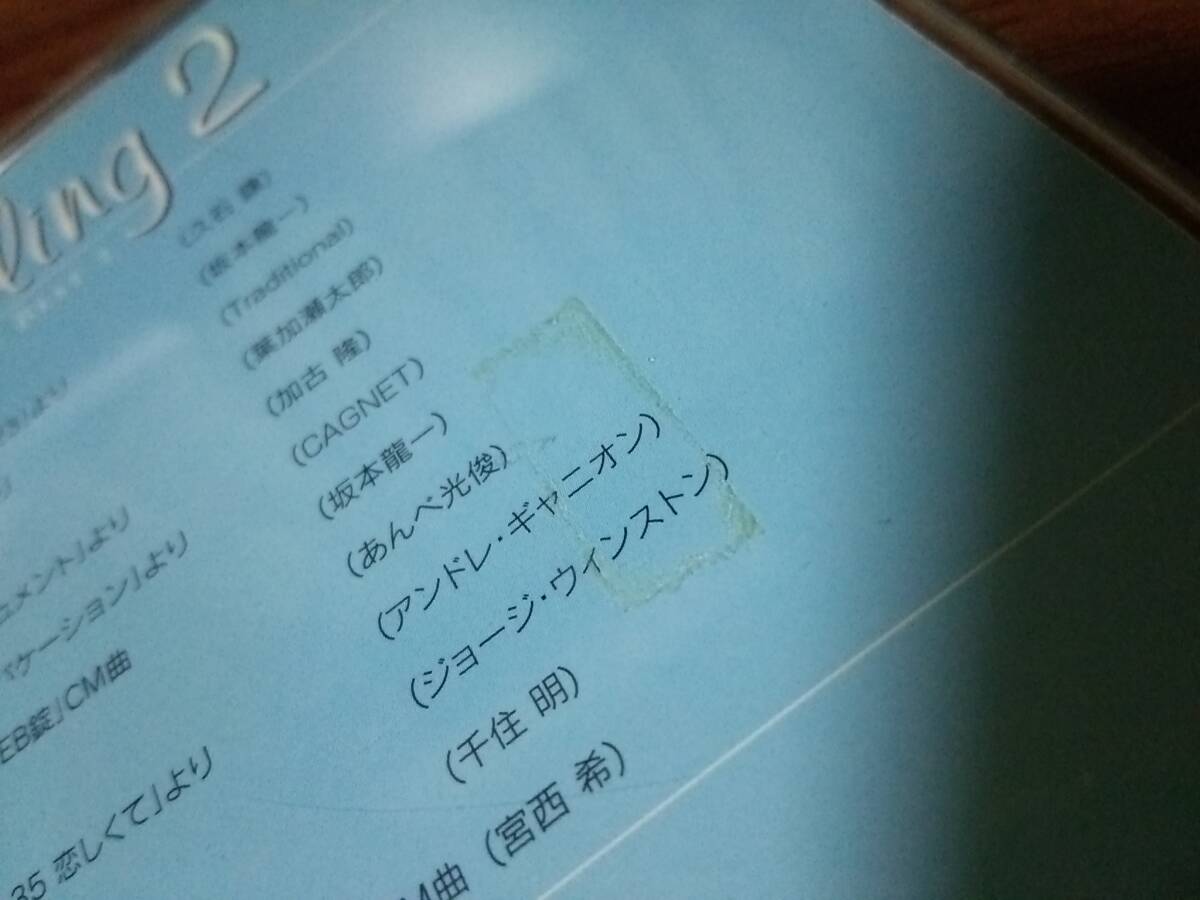 ling 2
(久石 譲)
(坂本龍一)
(Traditional)
(葉加瀬太郎)
(加古 隆)
(CAGNET)
より (坂本龍一)
ュメント」より (あんべ光俊)
ケーション」より (アンドレ・ギャニオン)
EB錠」CM曲 (ジョージ・ウィンストン)
(千住 明)
35 恋しくて」より
M曲 (宮西 希)